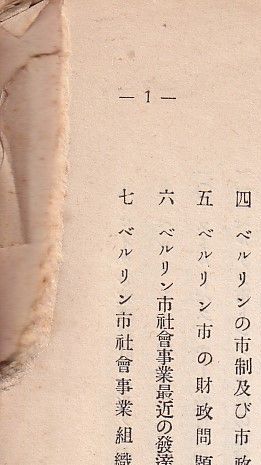 四 ベルリンの市制及び市政
五 ベルリン市の財政問題
六 ベルリン市社會事業最近の發達
七 ベルリン市社會事業組織
— 1 —